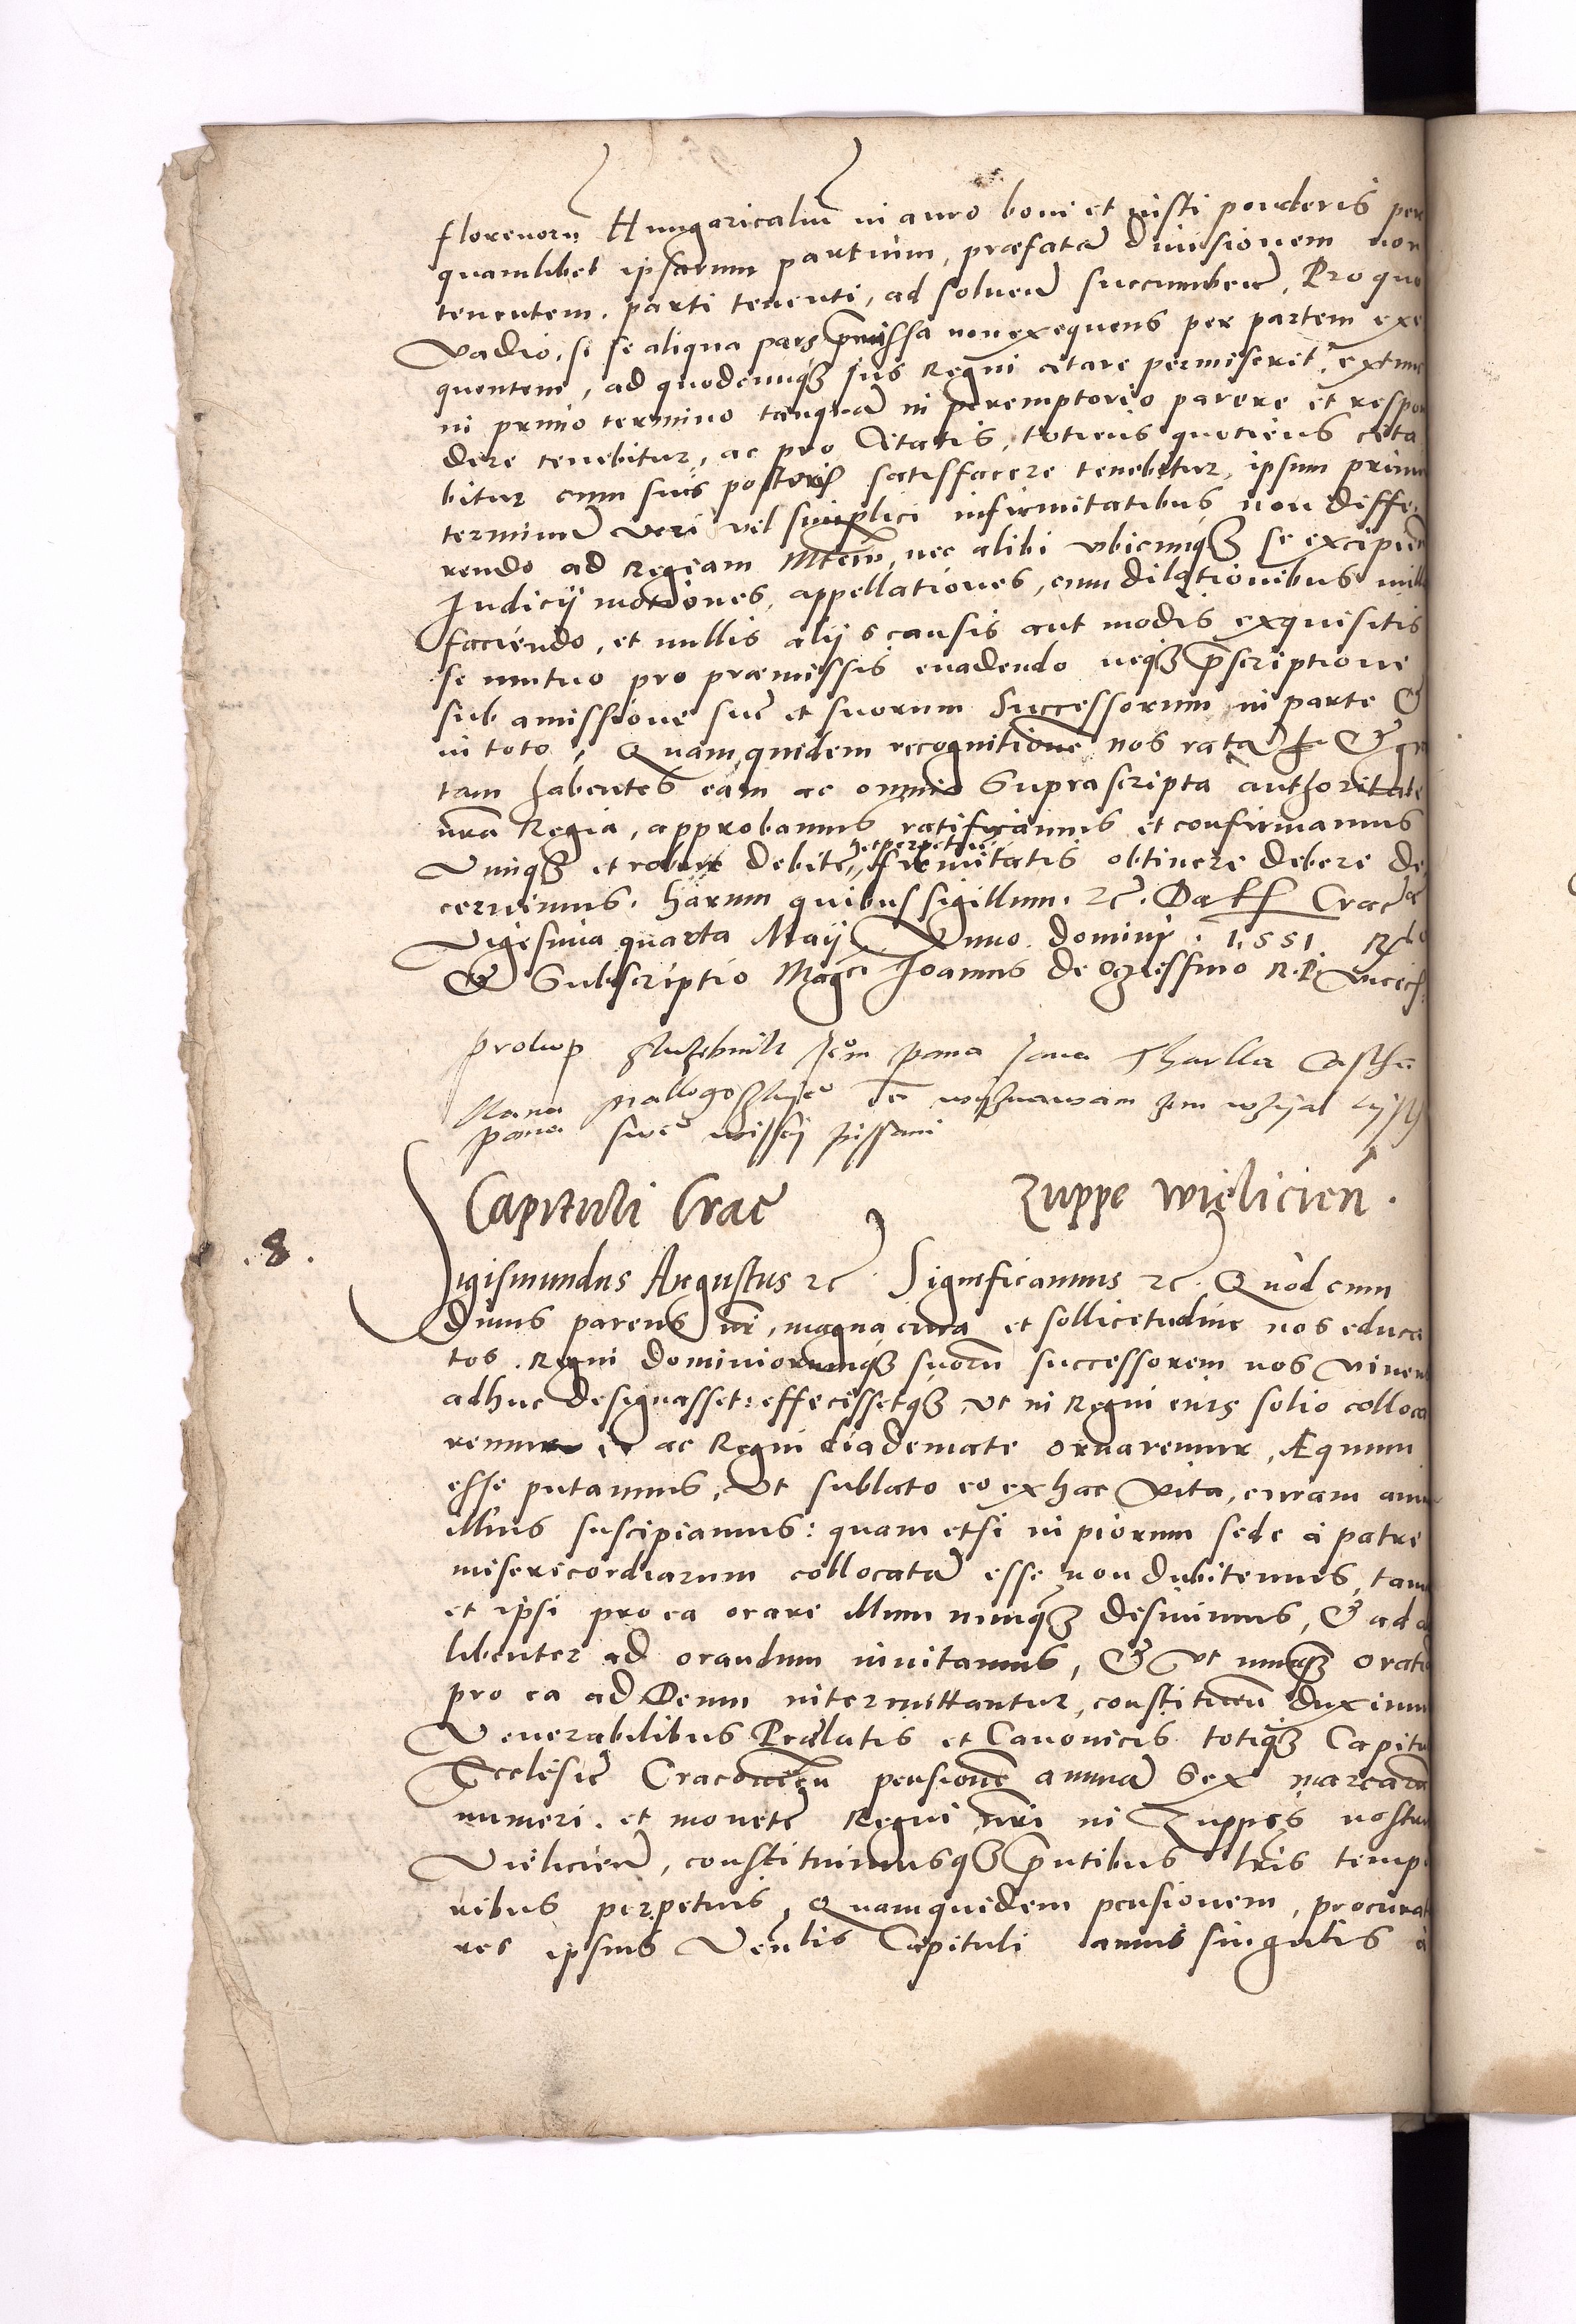 florenorū Hungaricaliū in auro boni et iusti ponderis per
quamlibet ipsarum partium, præfatā diuisionem non
tenentem, parti tenenti, ad soluen̄ succumben̄, Pro quo
Vadio, si se aliqua pars p̄missa non exequens per partem exe
quentem, ad quodcunqȝ Ius Regni citare permiserit, extunc
in primo termino tanquā in peremptorio parere et respon
dere tenebitur, ac pro citatis, totiens quotiens cita
bitur cum suis posteris satisfacere tenebitur, ipsum primū
terminū veri vel simplici infirmitatibus non diffe
rendo ad Regiam Mtem, nec alibi vbicunqȝ se excipien
Iudicij motiones, appellationes, cum dilationibus nulla
faciendo, et nullis alijs causis aut modis exquisitis
se mutuo pro præmissis euadendo neqȝ p̄scriptione
sub amissione suę et suorum Successorum in parte &
in toto, Quam quidem recognitionē nos ratā & gra
tam habentes eam ac omnia Suprascripta authoritate
nr̄a Regia, approbamus ratificamus et confirmamus
Vimqȝ et robur debitę et perpetuę firmitatis obtinere debere de
cernimus. harum quibus sigillum. &c. Datt Crac
Vigesima quarta Maij Anno domini 1551 R
& Subscriptio Magci Ioannis de Oczessino R. P. Vicecā
pana Jana Tharlla Casthe
llana mallogoskiego wyznawam zem wzyal
pana swe
Capituli Crac̄ Zuppę Wielicien̄.
.8.
Sigismundus Augustus &c Significamus &c. Quod cum
Diuus parens nr̄, magna cura et sollicitudine nos educa
tos, Regni dominiorumqȝ suorū successorem nos viuens
adhuc designasset: effecissetqȝ vt in Regni eius solio colloca
remur et ac Regni diademate ornaremur, Æquum
esse putamus, vt sublato eo ex hac vita, curam animę
illius suscipiamus: quam etsi in piorum sede à patre
misericordiarum collocatā esse non dubitemus, tamen
et ipsi pro ea orare illum nunqȝ desinimus, & ad
libenter ad orandum inuitamus, & vt nunqȝ oratio
pro ea ad Deum intermittantur, constituen̄ duximus
Venerabilibus Prælatis et Canonicis totiqȝ Capitu
Ecclesię Cracouien̄ pensionē annuā Sex marcarū
numeri, et monetę Regni nr̄i in Zuppis nostris
Vielicien̄, constituimusqȝ p̄ntibus lr̄is tempo
ribus perpetuis, Quamquidem pensionem, procurato
res ipsius Ven̄lis Capituli annis singulis à